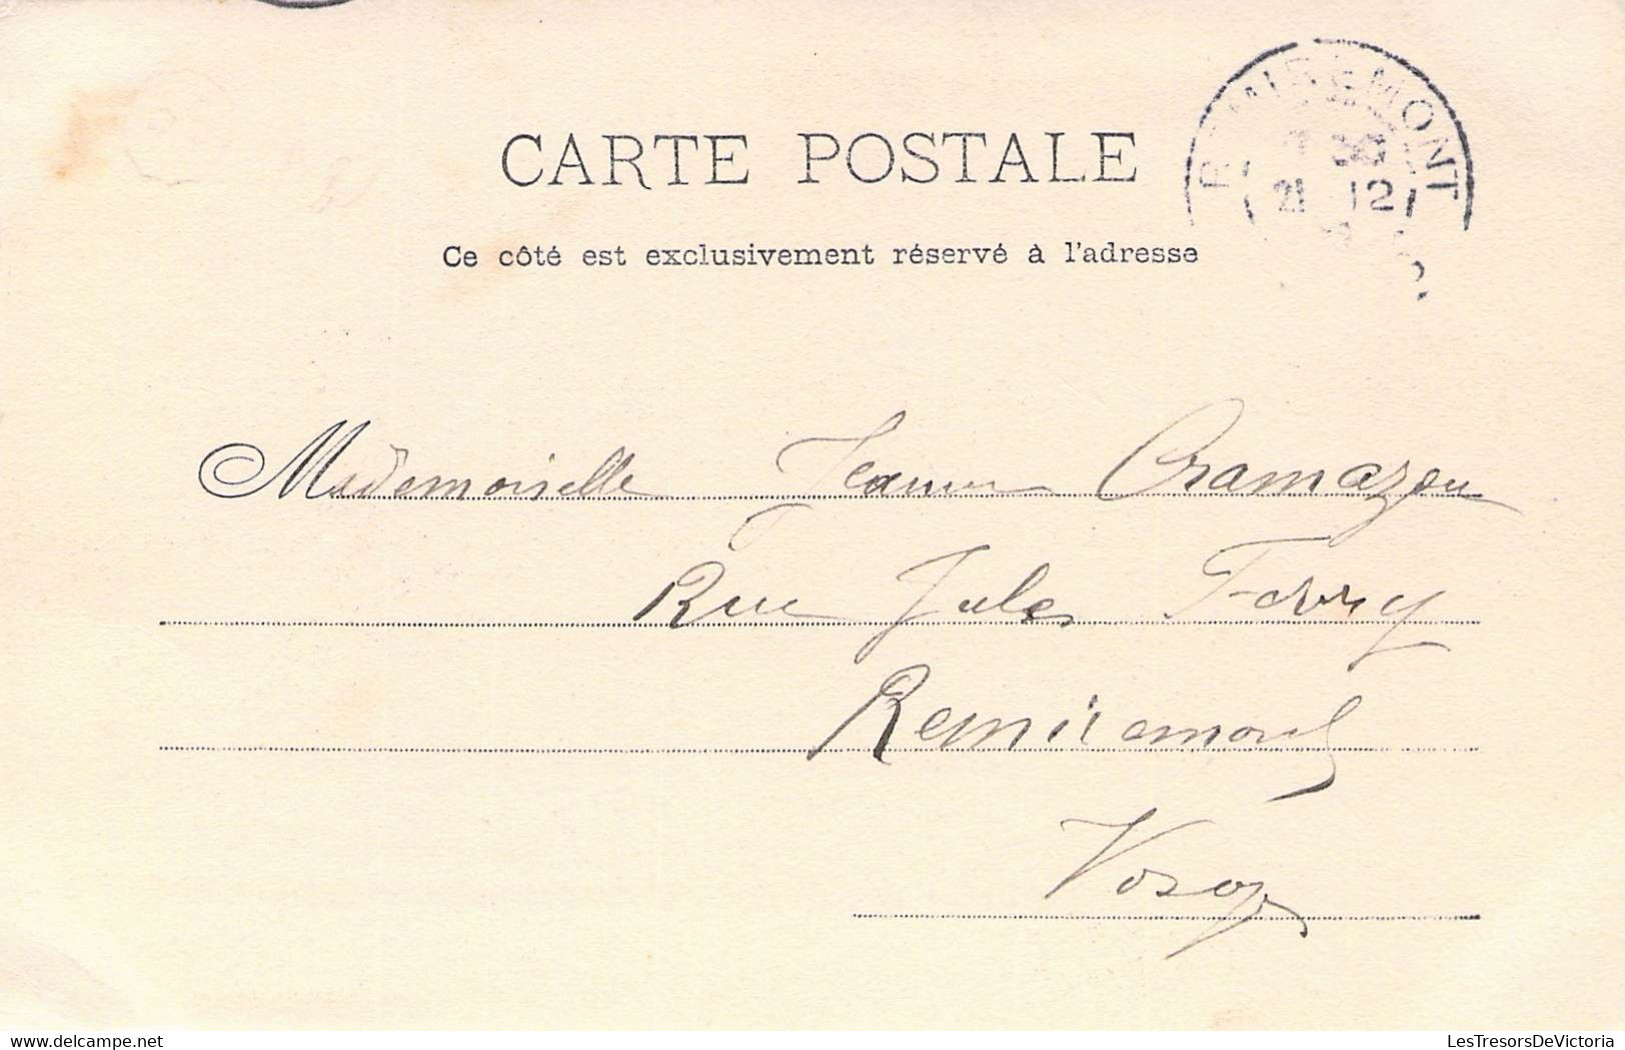 CARTE POSTALE
REMIREMONT
21 12
Ce côté est exclusivement réservé à l'adresse
Mademoiselle Jeanne Cramazou
Rue Jules Ferry
Remiremont
Vosges
www.delcampe.net
LesTresorsDeVictoria